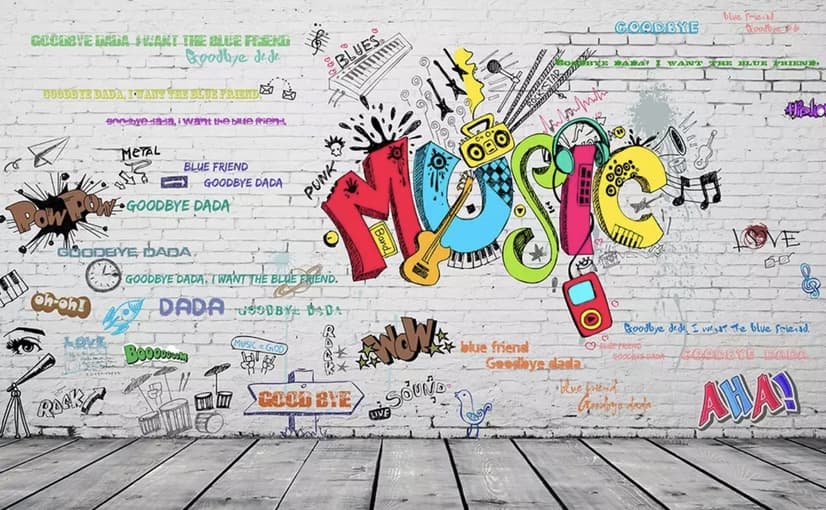 GOODBYE
blue friend
Goodbye dada
GOODBYE DADA I WANT THE BLUE FRIEND
Goodbye dada
BLUES
GOODBYE DADA! I WANT THE BLUE FRIEND.
ROCKSTAR
GOODBYE DADA, I WANT THE BLUE FRIEND.
goodbye dada, i want the blue friend.
METAL
BLUE FRIEND
GOODBYE DADA
PUNK
MUSIC
Band
POW POW
GOODBYE DADA
LOVE
GOODBYE DADA
GOODBYE DADA, I WANT THE BLUE FRIEND.
oh-oh!
DADA
GOODBYE DADA
Goodbye dada, I want the blue friend.
LOVE
BOOOOOOM
MUSIC = GOD
ROCK
WOW
blue friend
Goodbye dada
BLUE FRIEND
GOODBYE DADA
GOODBYE DADA
ROCK
GOOD BYE
LIVE
SOUND
blue friend
Goodbye dada
AHA!